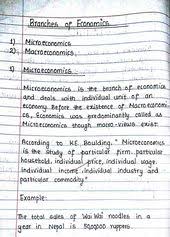 Branches of Economics
1) Microeconomics
2) Macroeconomics
1) Microeconomics
Microeconomics is the branch of economics
and deals with individual unit of an
economy. Before the existence of Macroeconom-
ics, Economics was predominantly called as
Microeconomics though macro-virus exist.
According to KE Boulding, " Microeconomics
is the study of particular firm, particular
household, individual price, individual wage,
individual income, individual industry and
particular commodity"
Example:
The total sales of Wai Wai noodles in a
year in Nepal is rupees.